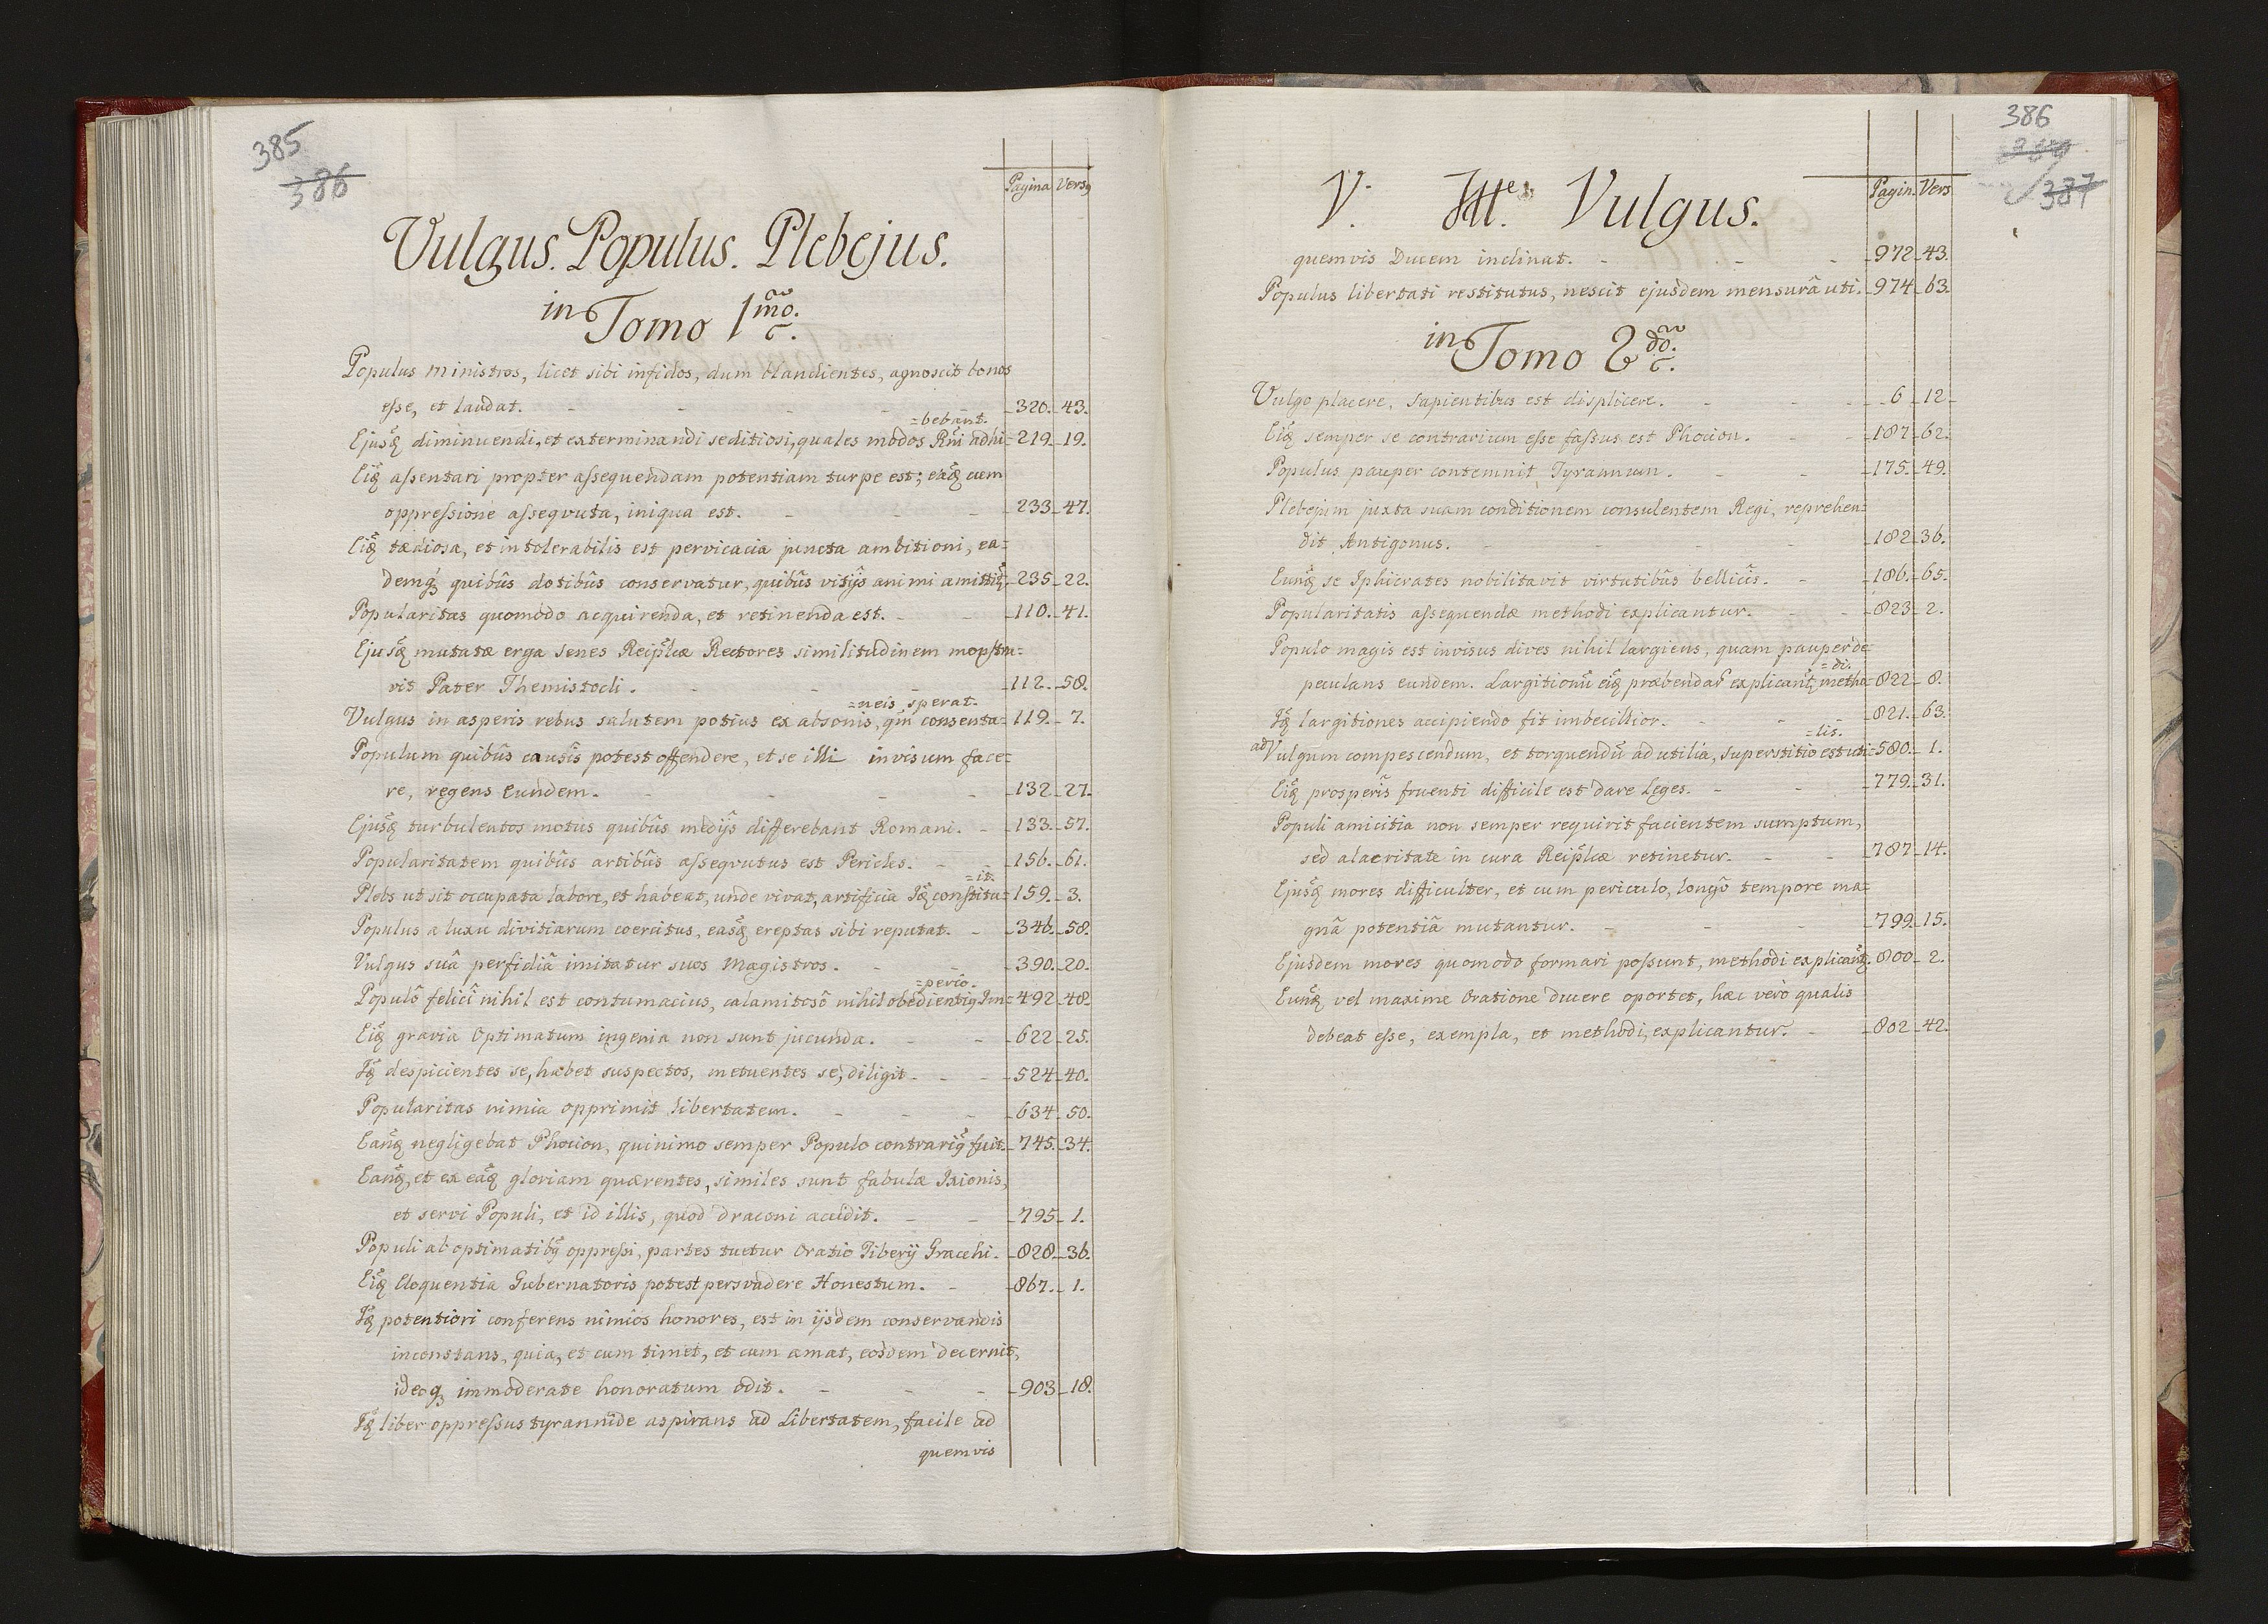 385
386
Pagina Versq
Vulgus. Populus. Plebejus.
in Tomo 1mo.
Populus ministros, licet sibi infidos, dum blandientes, agnoscit bonos
eſse, et laudat. - 320. 43.
=bebant.
Ejusq diminuendi, et exterminandi seditiosi, quales modos Rni adhi= 219. 19.
Eiq aſsentari propter aſsequendam potentiam turpe est; eaq cum
oppreſsione aſseqvuta, iniqua est. - 233. 47.
Eiq tædiosa, et intolerabilis est pervicacia juncta ambitioni, ea=
demq quibûs dotibûs conservatur, quibûs vitijs animi amittitq 235. 22.
Popularitas quomodo acquirenda, et retinenda est. - 110. 41.
Ejusq mutatæ erga senes Reiplcæ Rectores similitudinem monſtra=
vit Pater Themistocli. - 112. 58.
=neis sperat.
Vulgus in asperis rebus salutem potius ex absonis, qm consenta= 119. 7.
Populum quibûs causis potest offendere, et se illi invisum face=
re, regens eundem. - 132. 27.
Ejusq turbulentos motus quibûs medijs differebant Romani. - 133. 57.
Popularitatem quibûs artibûs aſseqvutus est Pericles. - 156. 61.
=it.
Plebs ut sit occupata labore, et habeat, unde vivat, artificia Iq conſtitu= 159. 3.
Populus a luxu divitiarum coercitus, easq ereptas sibi reputat. - 346. 58.
Vulgus suâ perfidiâ imitatur suos Magistros. - 390. 20.
=perio.
Populô felicî nihil est contumacius, calamitosô nihil obedientiq Im= 492. 48.
Eiq gravia Optimatum ingenia non sunt jucunda. - 622. 25.
Iq despicientes se, habet suspectos, metuentes se, diligit. - 524. 40.
Popularitas nimia opprimit libertatem. - 634. 50.
Eanq negligebat Phocion, quinimo semper Populo contrariq fuit. 745. 34.
Eanq, et ex eaq gloriam quærentes, similes sunt fabulæ Ixionis,
et servi Populi, et id illis, quod draconi accidit. - 795. 1.
Populi ab optimatibq oppreſsi, partes tuetur Oratio Tiberij Gracchi. 828. 36.
Eiq Eloquentia Gubernatoris potest persvadere Honestum. - 867. 1.
Iq potentiori conferens nimios honores, est in ijsdem conservandis
inconstans, quia, et cum timet, et cum amat, eosdem decernit,
ideoq immoderate honoratum odit. - 903. 18.
Iq liber oppreſsus tyrannide aspirans ad Libertatem, facile ad
quemvis
386
387
Pagin. Vers
V. Vulgus.
quemvis Ducem inclinat. - 972. 43.
Populus libertati restitutus, nescit ejusdem mensurâ uti. 974. 63.
in Tomo 2do.
Vulgo placere, sapientibus est displicere. - 6 12
Eiq semper se contrarium eſse faſsus est Phocion. - 187. 62.
Populus pauper contemnit Tyrannum. - 175. 49.
Plebejum juxta suam conditionem consulentem Regi, reprehen=
dit Antigonus. - 182. 36.
Eunq se Iphicrates nobilitavit virtutibûs bellicis. - 186. 65.
Popularitatis aſsequendæ methodi explicantur. - 823. 2.
Populo magis est invisus dives nihil largiens, quam pauper de=
=di.
peculans eundem. Largitionu eiq præbendar explicantq metho= 822. 8.
Iq largitiones accipiendo fit imbecillior. - 821. 63.
=lis.
ad Vulgum compescendum, et torquendu ad utilia, superstitio est uti= 580. 1.
Eiq prosperis fruenti difficile est dare leges. - 779. 31.
Populi amicitia non semper requirit facientem sumptum,
sed alacritate in cura Reiplcæ retinetur. - 787. 14.
Ejusq mores difficulter, et cum periculo, longô tempore ma=
gnâ potentiâ mutantur. - 799. 15.
Ejusdem mores quomodo formari poſsunt, methodi explicantq. 800. 2.
Eunq vel maxime Oratione ducere oportet, hæc verò qualis
debeat eſse, exempla, et methodi, explicantur. - 802. 42.